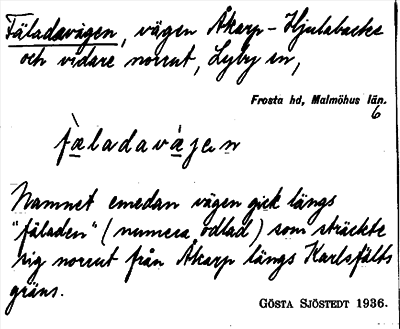 Fäladavägen, vägen Åkarp - Hjulabacke
och vidare norrut, Lyby sn,
Frosta hd, Malmöhus län.
6
fàladavàjen
Namnet emedan vägen gick längs
"fäladen" (numera odlad) som sträckte
sig norrut från Åkarp längs Karlsfälts
gräns.
GÖSTA SJÖSTEDT 1936.